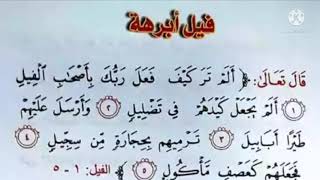 فيل أبرهة
قَالَ تَعَالَى: ﴿ أَلَمْ تَرَ كَيْفَ فَعَلَ رَبُّكَ بِأَصْحَابِ الْفِيلِ
١ أَلَمْ يَجْعَلْ كَيْدَهُمْ فِي تَضْلِيلٍ ٢ وَأَرْسَلَ عَلَيْهِمْ
طَيْرًا أَبَابِيلَ ٣ تَرْمِيهِم بِحِجَارَةٍ مِّن سِجِّيلٍ ٤
فَجَعَلَهُمْ كَعَصْفٍ مَّأْكُولٍ ٥ ﴾ الفيل: ١ - ٥